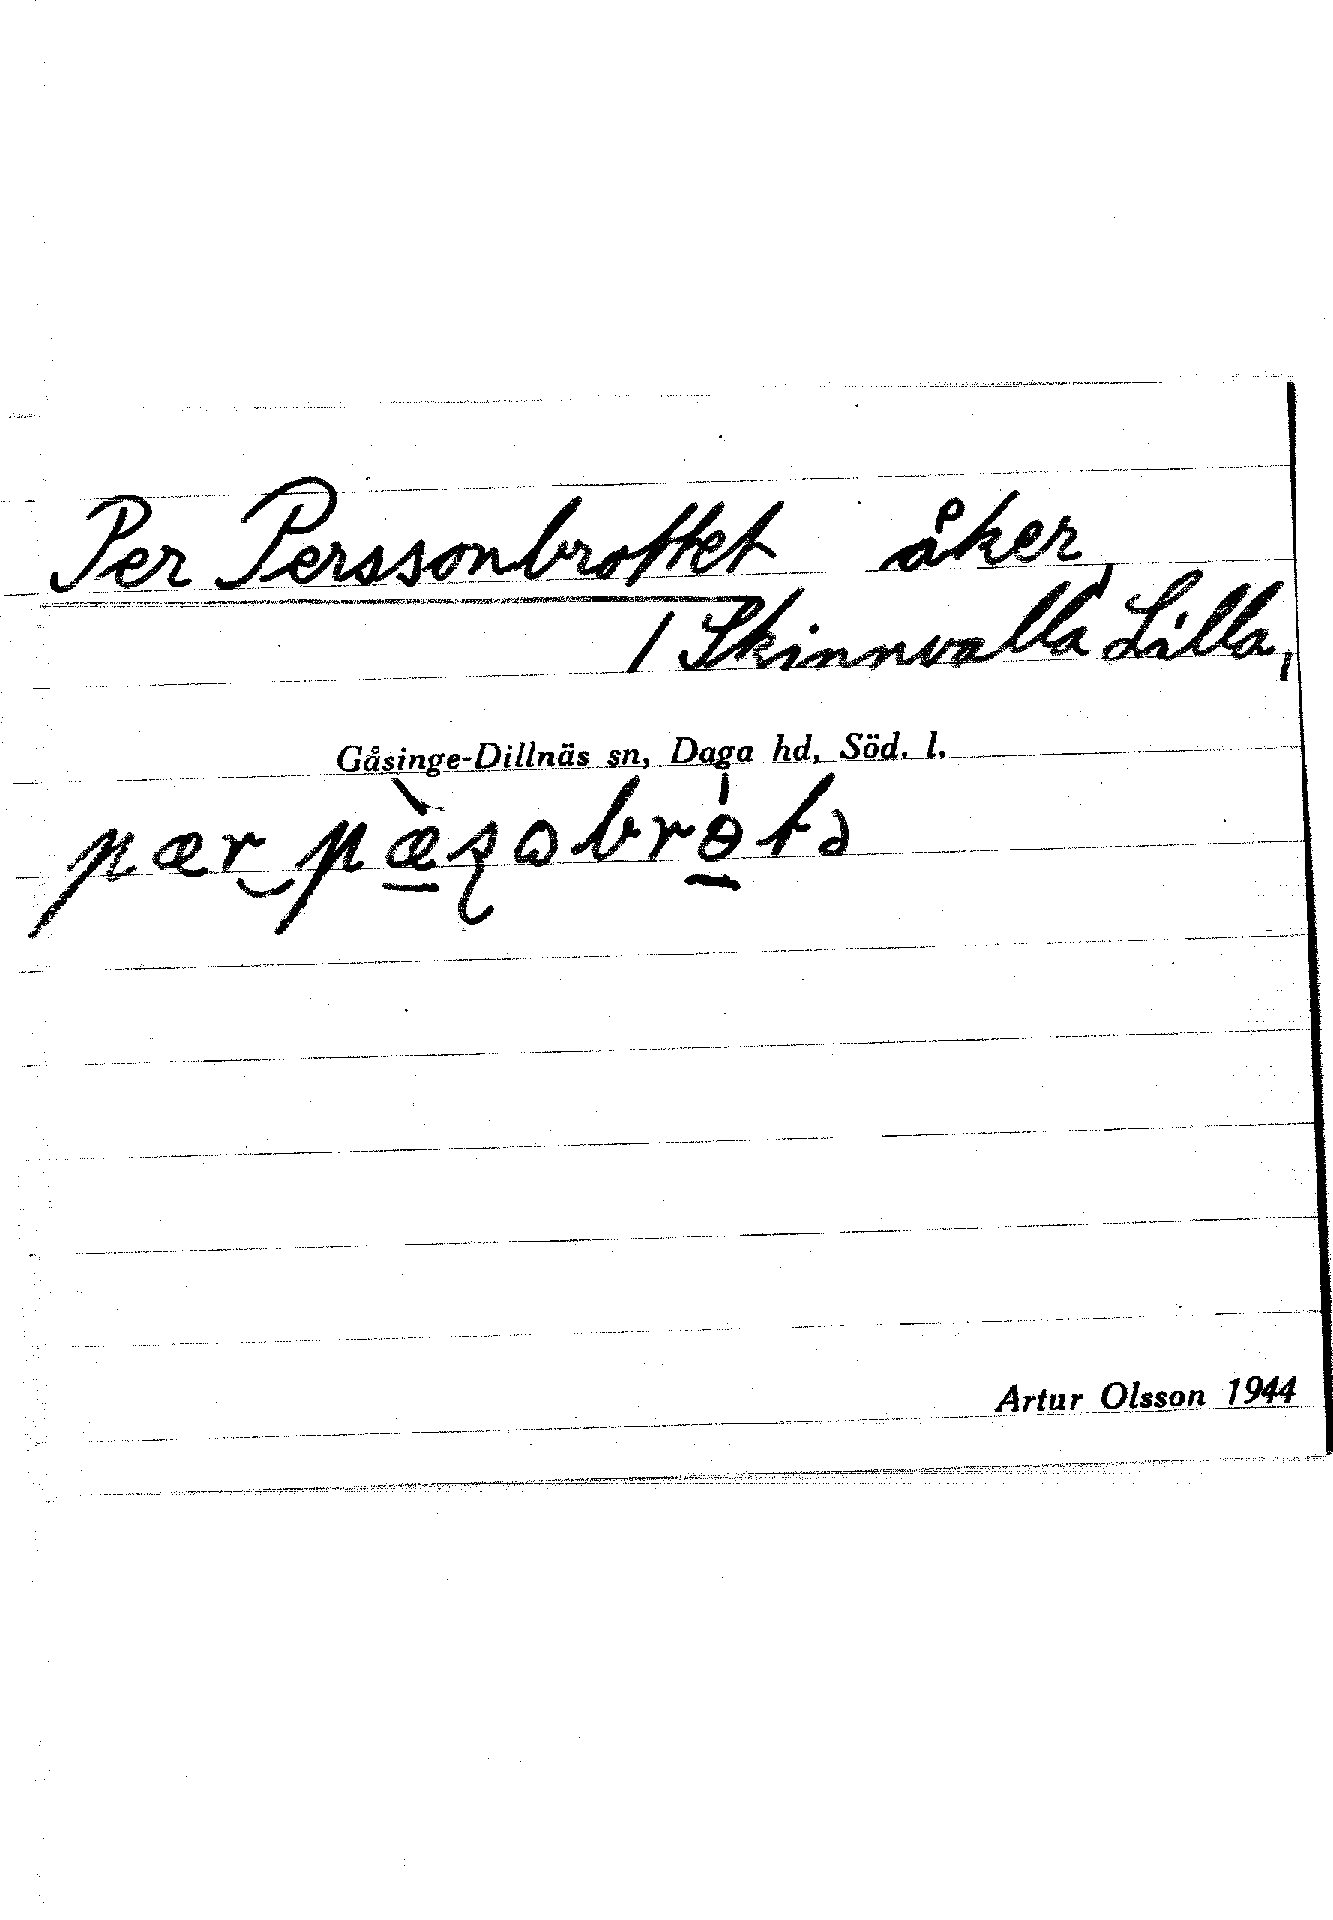 Per Perssonbrottet åker,
/ Skinnvalla Lilla,
Gåsinge-Dillnäs sn, Daga hd, Söd. l.
pær‿pæ̀ʂɷbrɵ́tə
Artur Olsson 1944